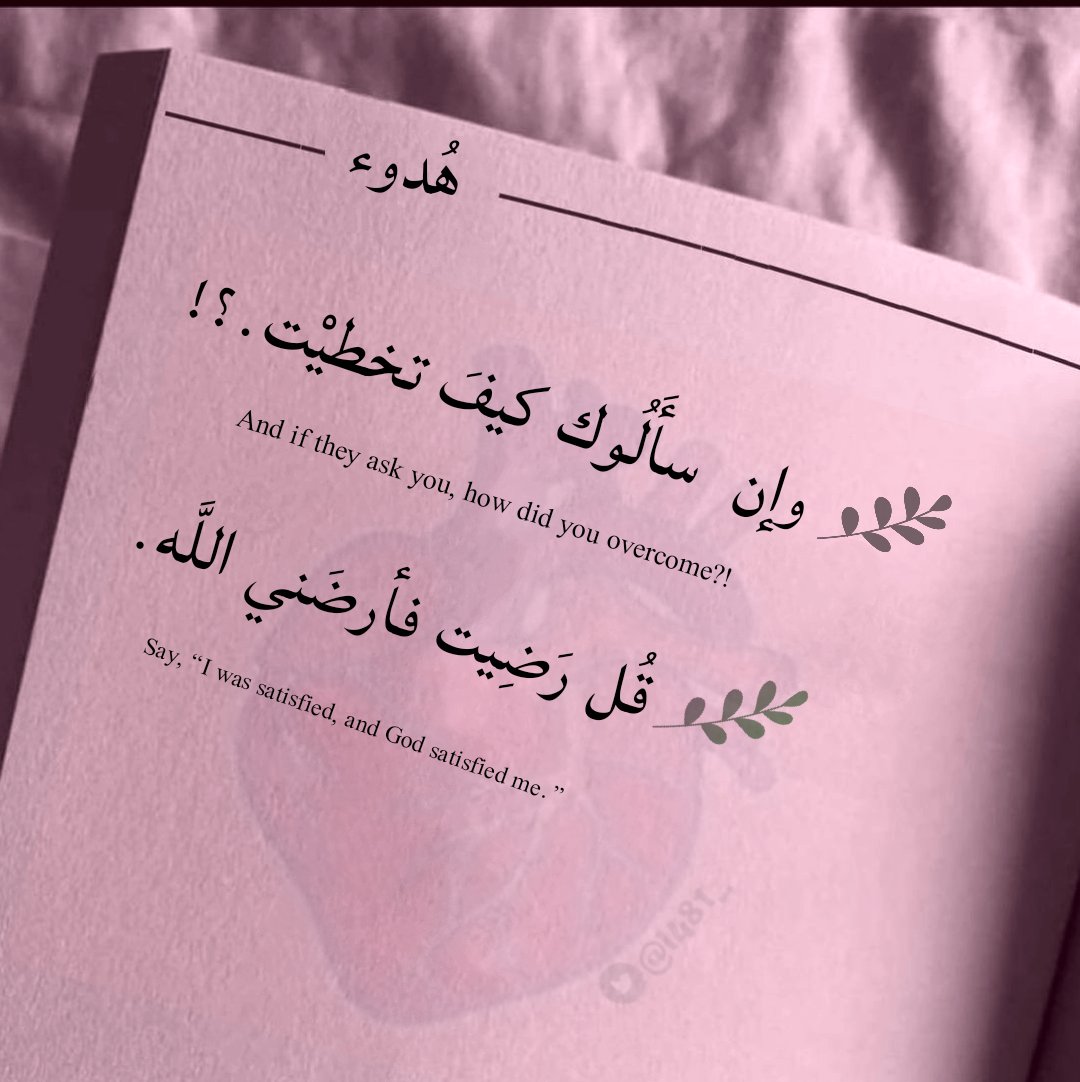 هُدوء
وإن سأَلُوك كيفَ تخطيْت.؟!
And if they ask you, how did you overcome?!
قُل رَضِيت فأرضَني اللَّه.
Say, “I was satisfied, and God satisfied me. ”